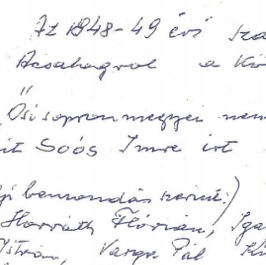 Az 1948-49 évi sza
Acsalagról a Kö
Ősi sopronmegyei nem
it Soós Imre írt
pi bemondás szerint:)
Horváth Flórián, Iga
István, Varga Pál K